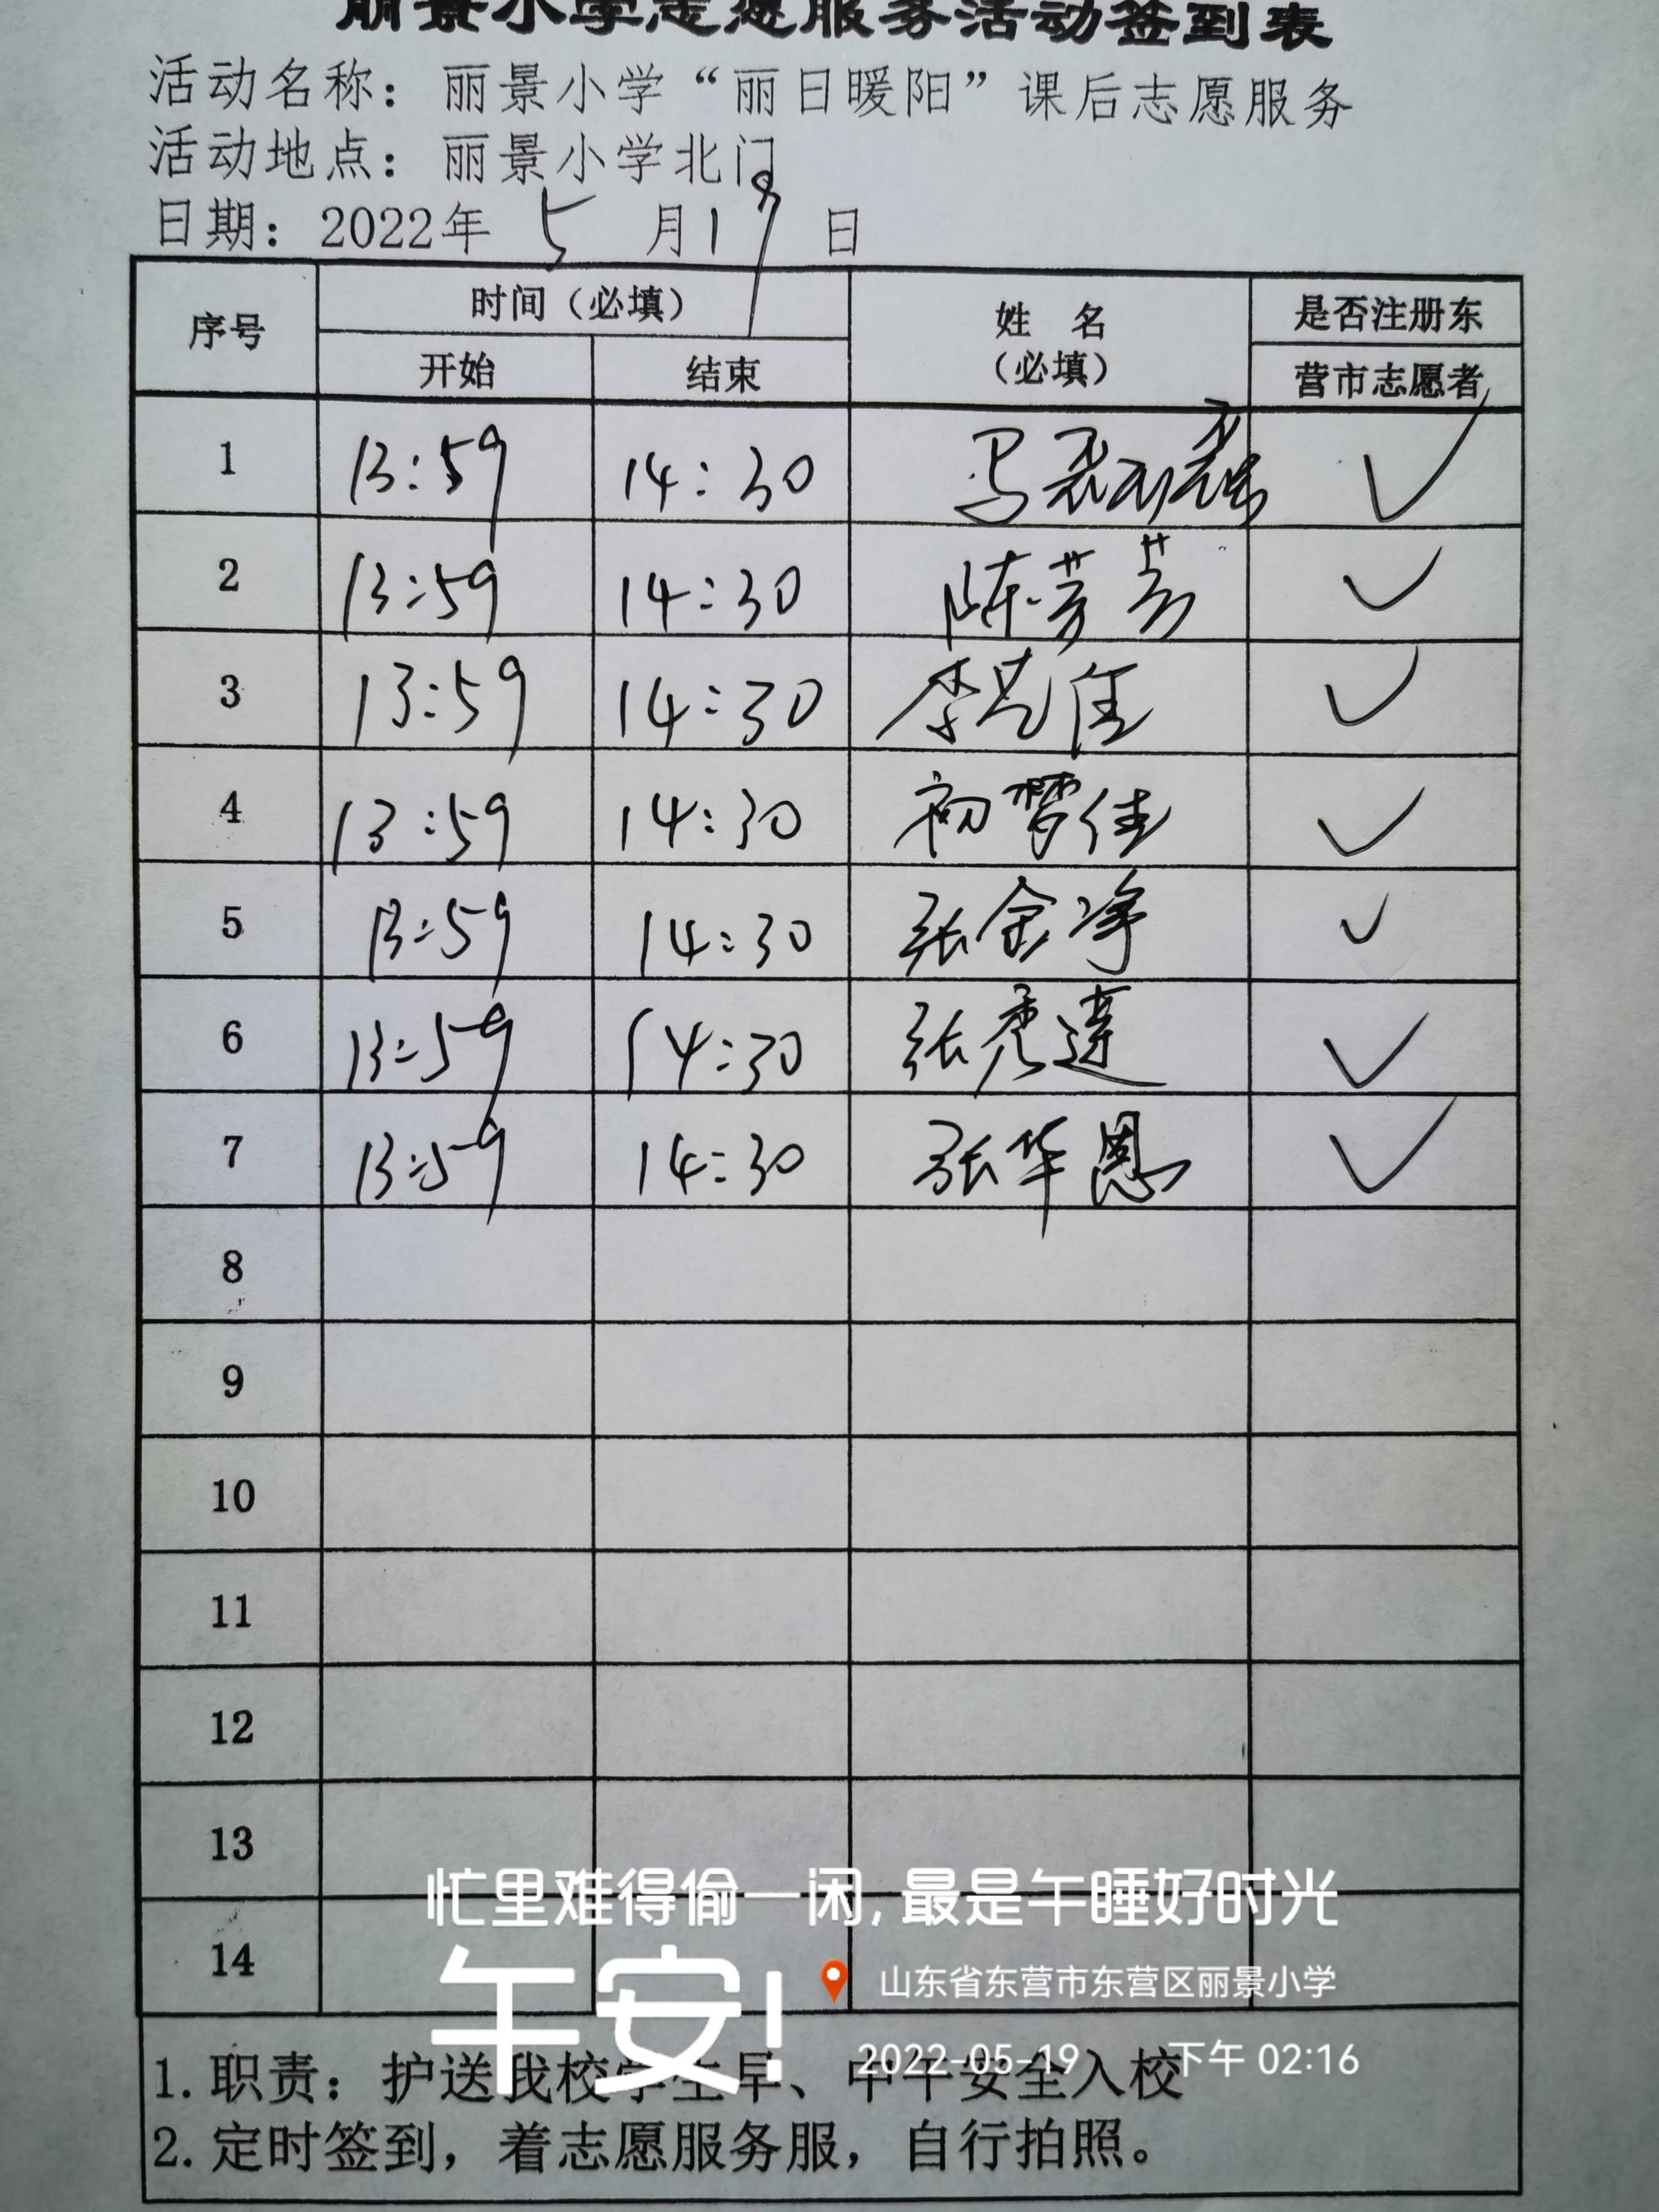 丽景小学志愿服务活动签到表
活动名称：丽景小学“丽日暖阳”课后志愿服务
活动地点：丽景小学北门
日期：2022年 5 月19 日
序号 时间（必填） 姓 名（必填） 是否注册东营市志愿者
开始 结束
1 13:59 14:30 马 ✓
2 13:59 14:30 陈芳芳 ✓
3 13:59 14:30 李 佳 ✓
4 13:59 14:30 初梦佳 ✓
5 13:59 14:30 张金净 ✓
6 13:59 14:30 张秀莲 ✓
7 13:59 14:30 张华恩 ✓
8
9
10
11
12
13
忙里难得偷一闲,最是午睡好时光
14
午安!
山东省东营市东营区丽景小学
2022-05-19 下午 02:16
1.职责：护送我校学生早、中午安全入校
2.定时签到，着志愿服务服，自行拍照。